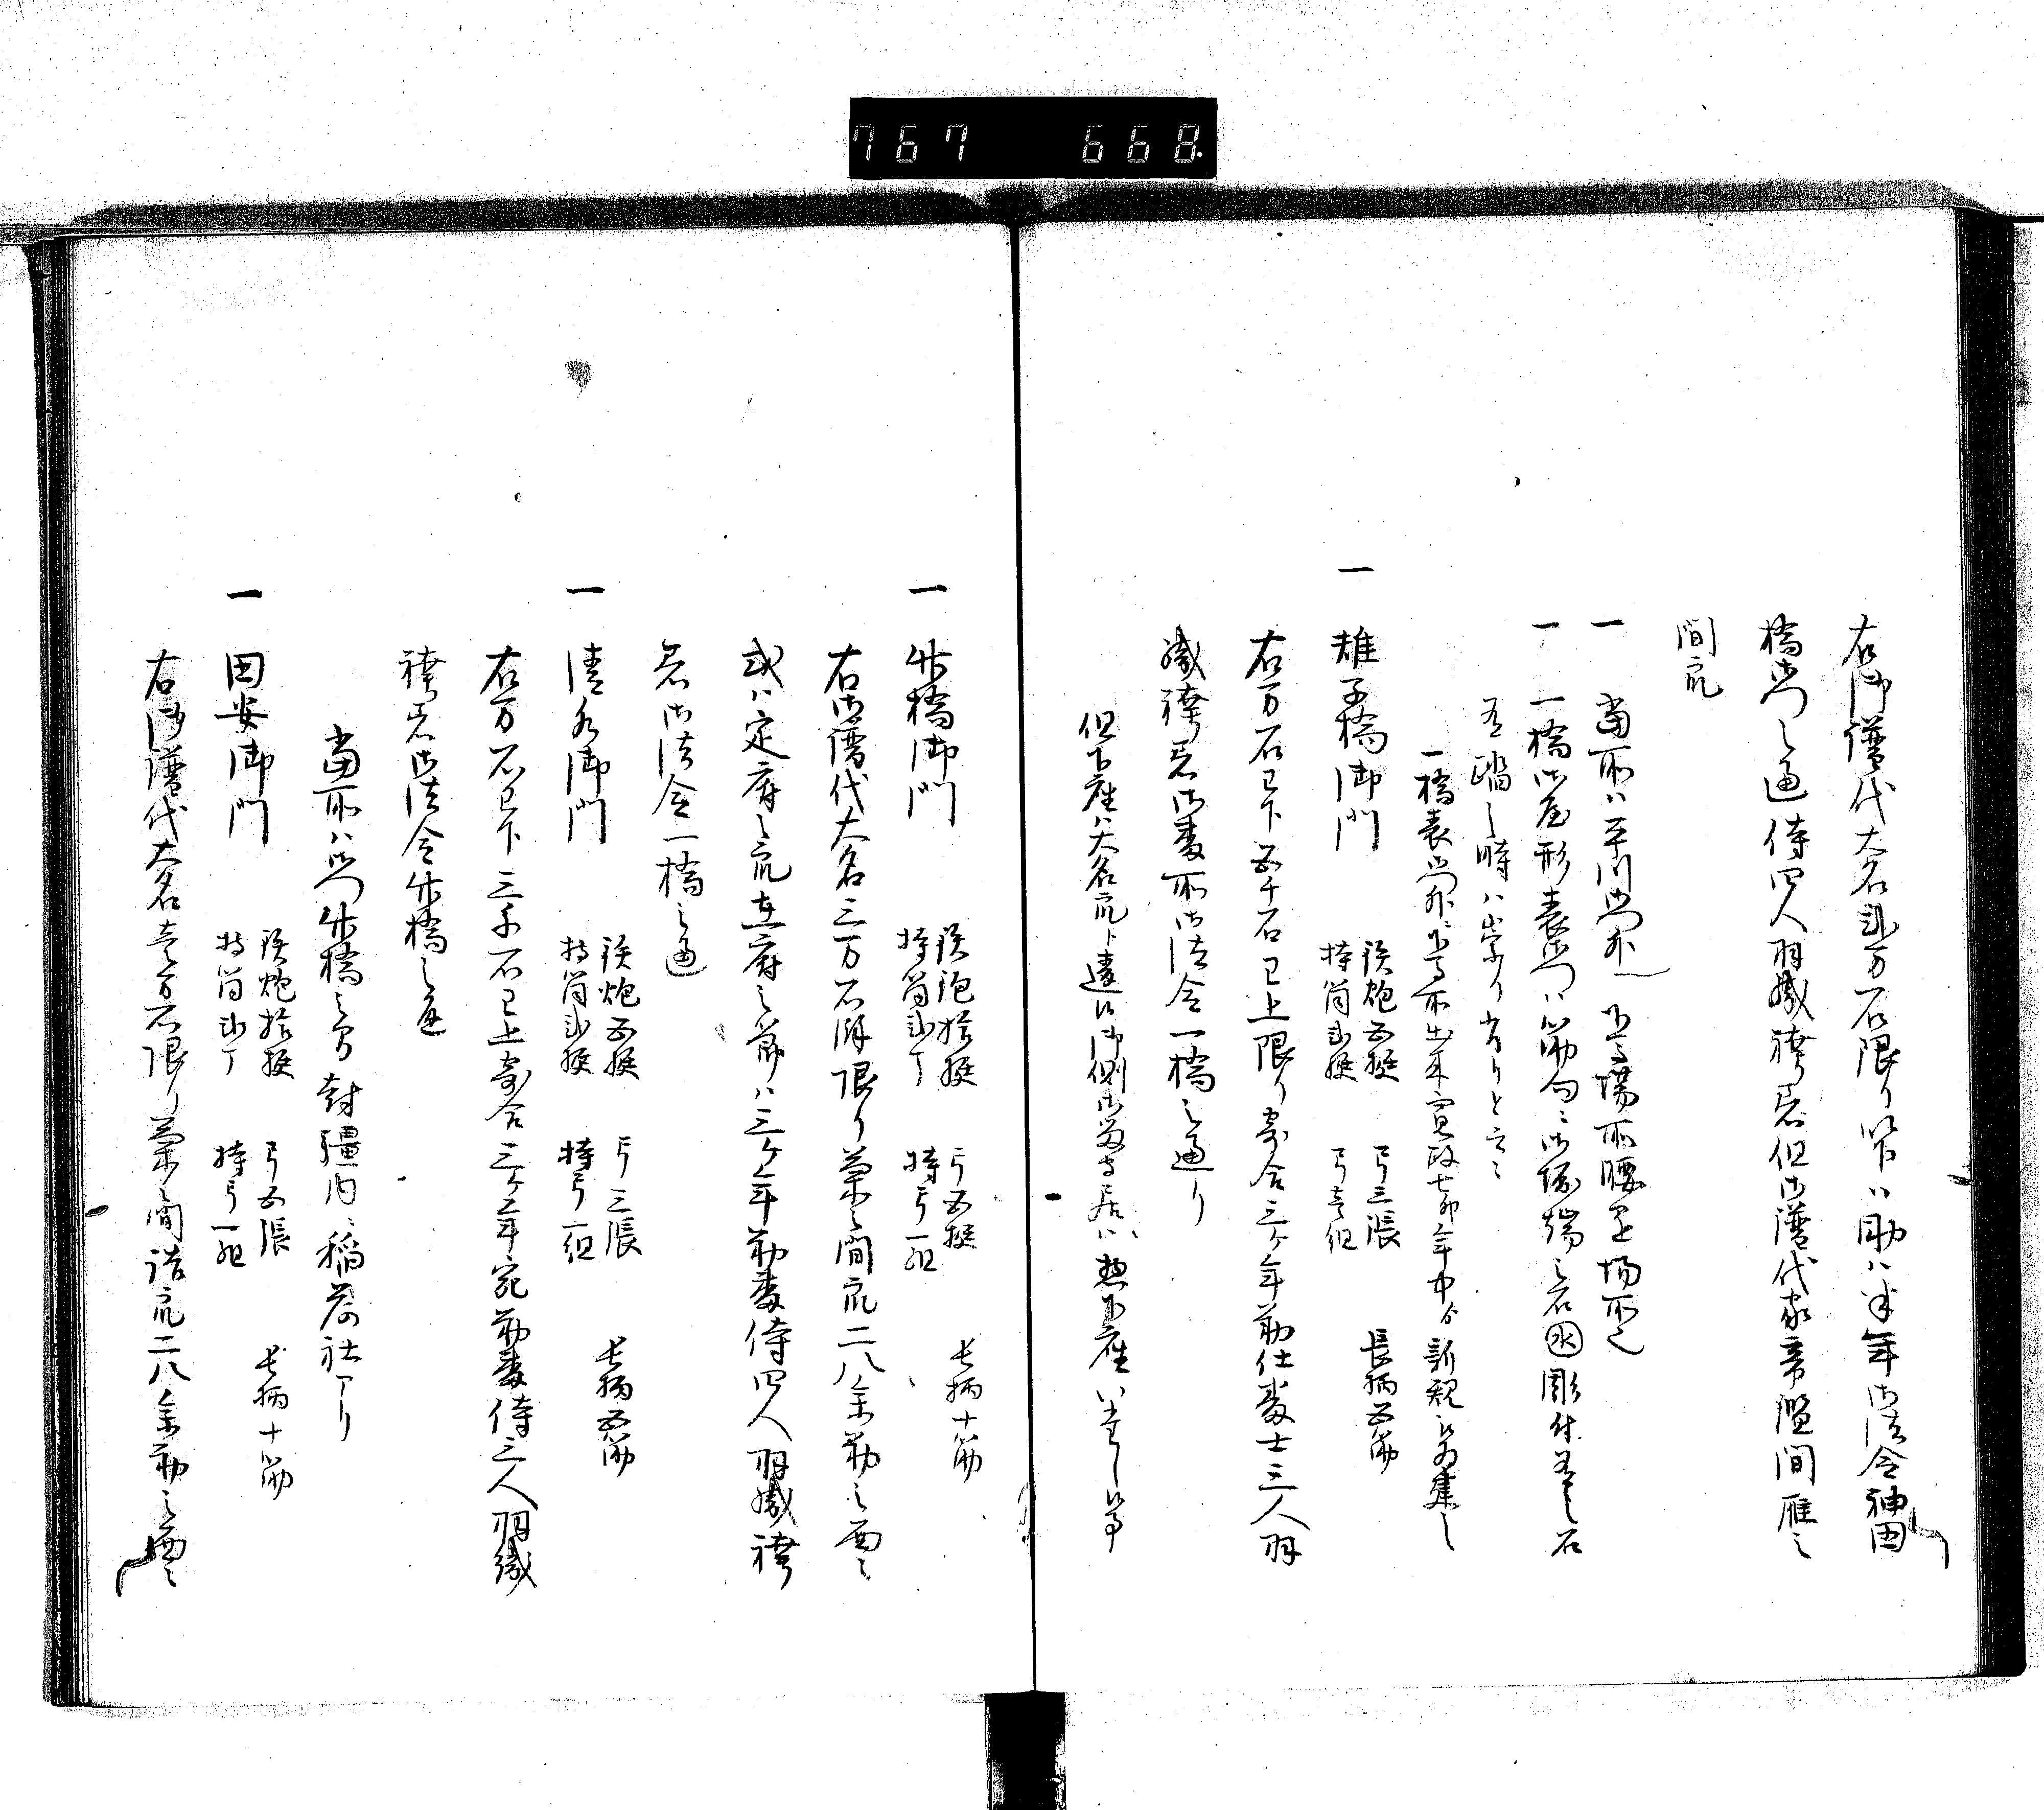 767 668
右御譜代大名弐万石限り以下ハ助ハ半年御法令神田
橋御門之通侍四人羽織袴着但御譜代家帝鑑間雁之
間席
一 当所ハ平川御門外 下馬場所腰掛場所也
一 一橋御屋形表御門ハ筋向ニ御堀端之石㊌彫付有之石
有踏し時ハ崇り有りと云々
一橋表御門外ニ下馬所出来寛政七卯年中ゟ新規ニ
一 雉子橋御門 鉄炮五挺 持筒弐挺 弓三張 弓壱組 長柄五筋
右万石已下五千石已上限り寄合三ヶ年勤仕番士三人羽
織袴着御番所御法令一橋之通り
但下座ハ大名席ト違御側
一 竹橋御門 鉄炮拾挺 持筒弐丁 弓五挺 持弓一組 長柄十筋
右御譜代大名三万石 限り菊之間席二八余勤之
或ハ定府之席在府之節ハ三ヶ年勤番侍四人羽織袴
着御法令一橋之通
一 清水御門 鉄炮五挺 持筒弐挺 弓三張 持弓一組 長柄五筋
右万石已下三千石已上寄合三ヶ年宛勤番侍三人羽織
袴着御法令竹橋之通
当所ハ御門竹橋之方封疆内ニ稲荷社アリ
一 田安御門 鉄炮拾挺 持筒弐丁 弓五張 持弓一組 長柄十筋
右御譜代大名壱万石限り菊之間詰席二八余勤之